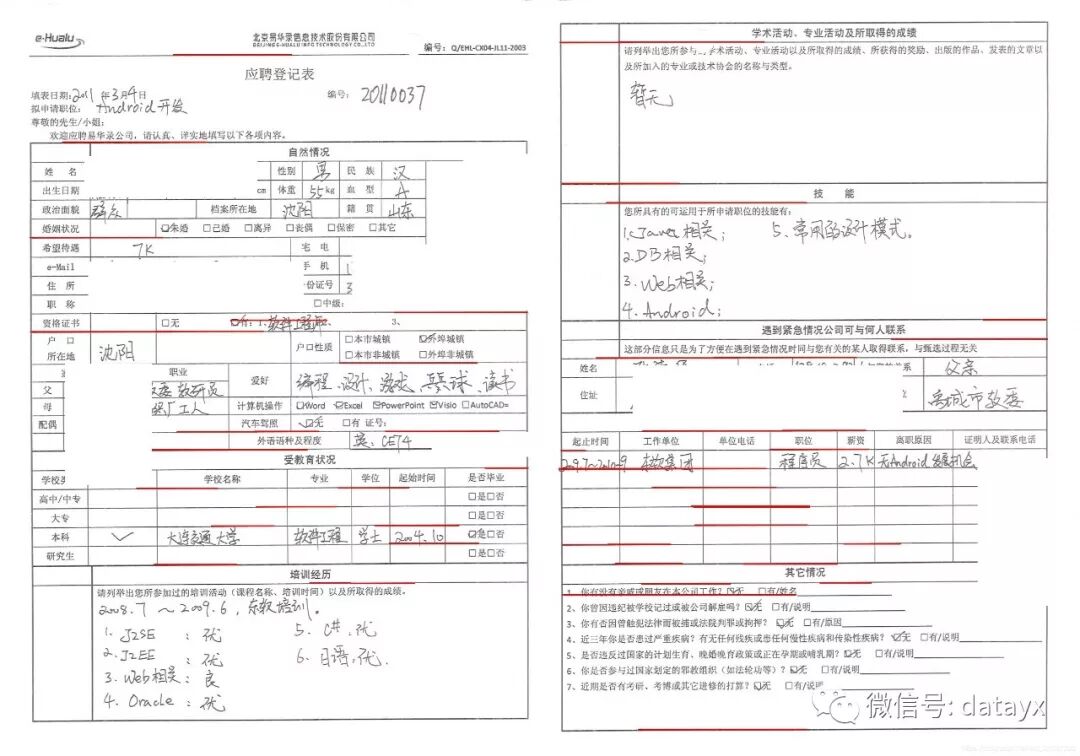 e-Hualu
北京易华录信息技术股份有限公司
BEIJING E-HUALU INFO TECHNOLOGY CO.,LTD
编号：Q/EHL-CX04-JL11-2003
应聘登记表
填表日期:2011 年3月4日
编号: 20110037
拟申请职位: Android开发
尊敬的先生/小姐:
欢迎应聘易华录公司，请认真、详实地填写以下各项内容。
自然情况
姓 名 性别 男 民 族 汉
出生日期 cm 体重 55kg 血 型 A
政治面貌 群众 档案所在地 沈阳 籍 贯 山东
婚姻状况 ☑未婚 □已婚 □离异 □丧偶 □保密 □其它
希望待遇 7K 宅 电
e-Mail 手 机 1
住 所 份证号 3
职 称 □中级:
资格证书 □无 ☑有: 1、软件工程师2、 3、
户 口 所在地 沈阳 户口性质 □本市城镇 ☑外埠城镇
□本市非城镇 □外埠非城镇
职业
父 教研员 爱好 编程、设计、游戏、乒乓球、读书
母 工人 计算机操作 □Word ☑Excel ☑PowerPoint ☑Visio □AutoCAD=
配偶 汽车驾照 ☑无 □有 证号:
外语语种及程度 英、CET4
受教育状况
学校类 学校名称 专业 学位 起始时间 是否毕业
高中/中专 □是□否
大专 □是□否
本科 ✓ 大连交通大学 软件工程 学士 2004.10 ☑是□否
研究生 □是□否
培训经历
请列举出您所参加过的培训活动（课程名称、培训时间）以及所取得的成绩。
2008.7 ～2009.6，东软培训。
1. J2SE ：优 5. C#，优
2. J2EE ：优 6. 日语，优.
3. Web相关：良
4. Oracle ：优
学术活动、专业活动及所取得的成绩
请列举出您所参与 学术活动、专业活动以及所取得的成绩、所获得的奖励、出版的作品、发表的文章以
及所加入的专业或技术协会的名称与类型。
暂无
技 能
您所具有的可运用于所申请职位的技能有:
1. Java相关； 5、常用的设计模式。
2. DB相关；
3. Web相关；
4. Android；
遇到紧急情况公司可与何人联系
这部分信息只是为了方便在遇到紧急情况时间与您有关的某人取得联系，与甄选过程无关
姓名 的关系 父亲
住址 禹城市教委
起止时间 工作单位 单位电话 职位 薪资 离职原因 证明人及联系电话
2009.7～2010.9 东软集团 程序员 2.7K 无Android发展机会
其它情况
1、你有没有亲戚或朋友在本公司工作? ☑无 □有/姓名
2、你曾因违纪被学校记过或被公司解雇吗? ☑无 □有/说明
3、你有否因曾触犯法律而被捕或法院判罪或拘押? ☑无 □有/原因
4、近三年你是否患过严重疾病? 有无任何残疾或患任何慢性疾病和传染性疾病? ☑无 □有/说明
5、是否违反过国家的计划生育、晚婚晚育政策或正在孕期或哺乳期? ☑无 □有/说明
6、你是否参与过国家划定的邪教组织（如法轮功等）? ☑无 □有/说明
7、近期是否有考研、考博或其它进修的打算? ☑无 □有/说
微信号: datayx